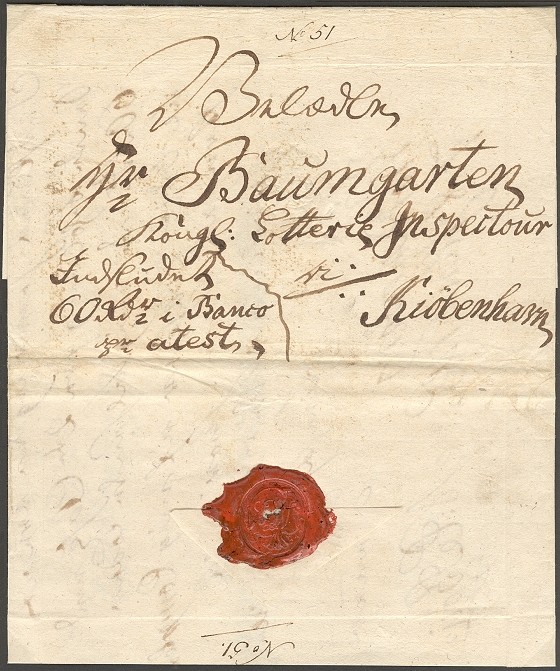 No 51
Velædle
Hr Baumgarten
Kongl: Lotterie Inspecteur
Indsludet
60 Rdr i Banco
pr atest,
i
Kiöbenhavn
No 51.